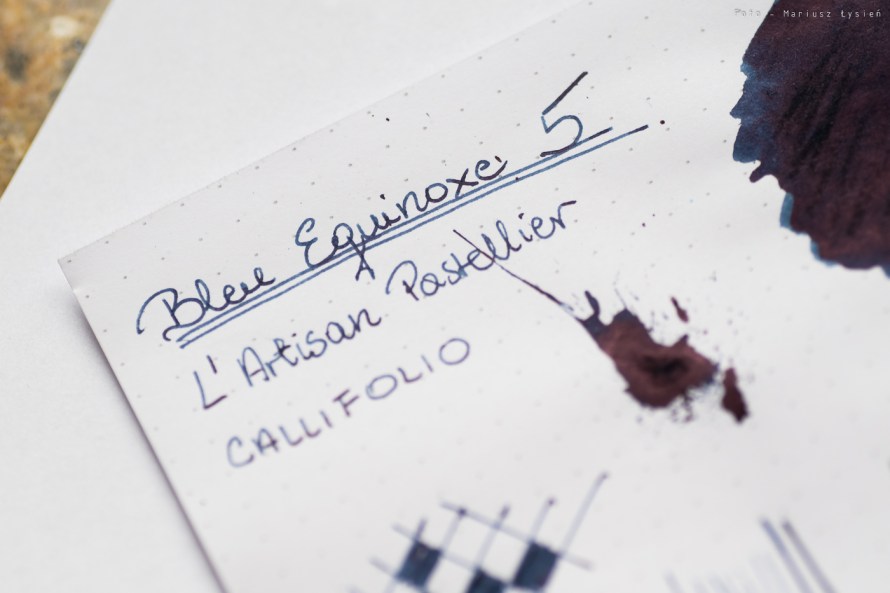 Foto - Mariusz Łysień
Bleu Equinoxe 5
L'Artisan Pastellier
CALLIFOLIO